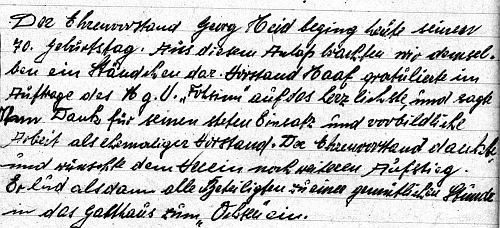 Der Ehrenvorstand Georg Heid beging heute seinen
70. Geburtstag. Aus diesem Anlaß brachten wir demsel-
ben ein Ständchen dar. Vorstand Haaf gratulierte im
Auftrage des M.g.V. „Frohsinn" auf das herzlichste und sagte
ihm Dank für seinen steten Einsatz und vorbildliche
Arbeit als ehemaliger Vorstand. Der Ehrenvorstand dankte
und wünschte dem Verein noch weiteren Aufstieg.
Er lud alsdann alle Beteiligten zu einer gemütlichen Stunde
in das Gasthaus zum „Ochsen" ein.